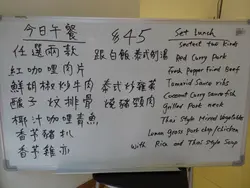 今日午餐
$45
Set Lunch
任選兩款
跟白飯 泰式明湯
Select two
紅咖哩肉片
Red Curry Pork
鮮胡椒炒牛肉
泰式炒雜菜
Fresh Pepper Fried Beef
酸子炆排骨
燒豬頸肉
Tamarind Sauce ribs
椰汁咖哩青魚
Coconut Curry Sauce fish
香茅豬扒
Grilled Pork neck
香茅雞亦
Thai Style Mixed Vegetables
Lemon Grass pork chop/chicken
with Rice and Thai Style Soup